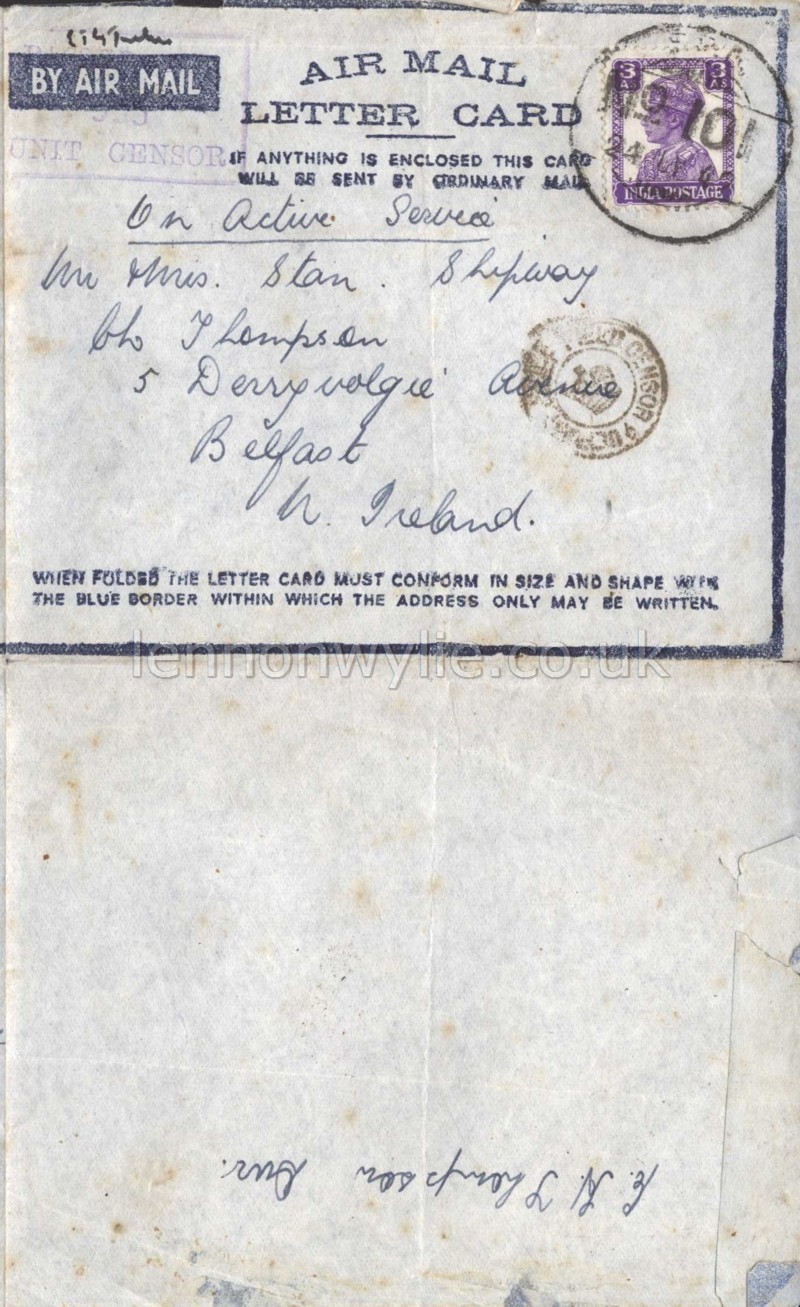 BY AIR MAIL
UNIT CENSOR
AIR MAIL
LETTER CARD
IF ANYTHING IS ENCLOSED THIS CARD
WILL BE SENT BY ORDINARY MAIL
3 AS 3 AS
INDIA POSTAGE
On Active Service
Mr & Mrs. Stan. Shipway
C/o Thompson
5 Derryvolgie Avenue
Belfast
N. Ireland.
CENSOR
WHEN FOLDED THE LETTER CARD MUST CONFORM IN SIZE AND SHAPE WITH
THE BLUE BORDER WITHIN WHICH THE ADDRESS ONLY MAY BE WRITTEN.
lennonwylie.co.uk
Thompson